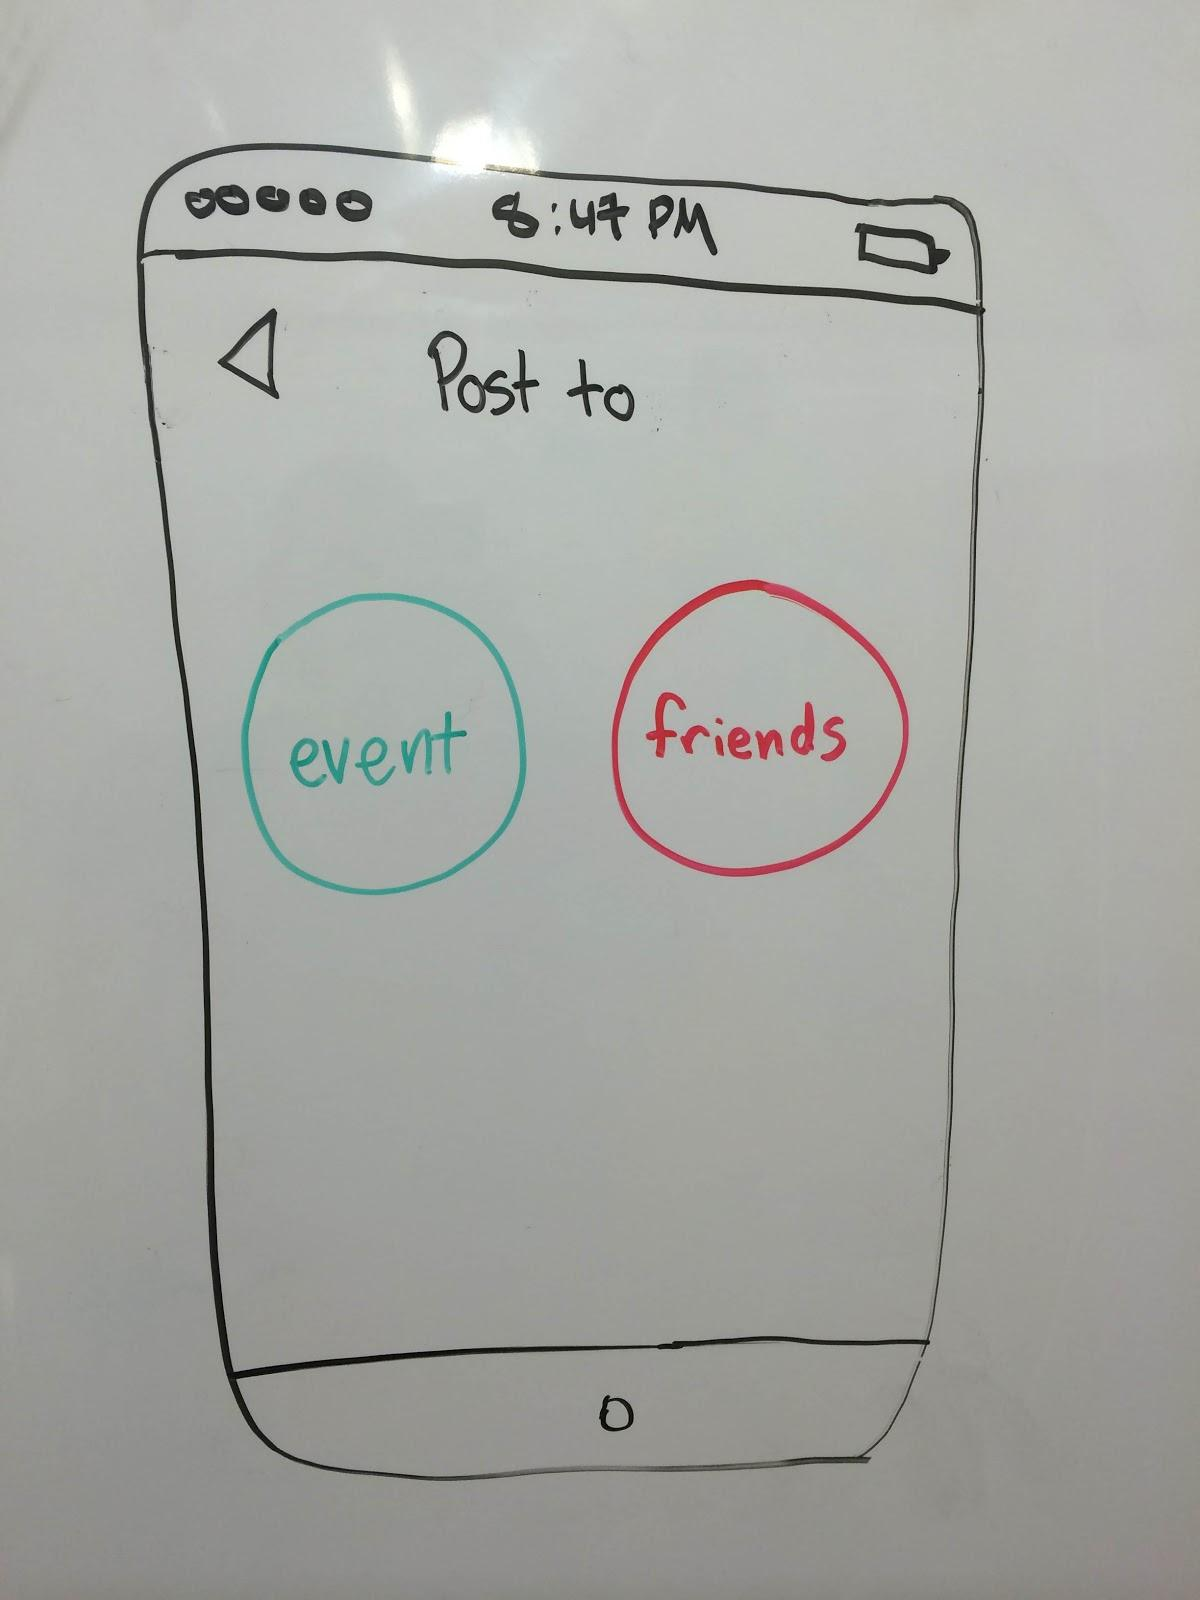 8:47 PM
Post to
event
friends